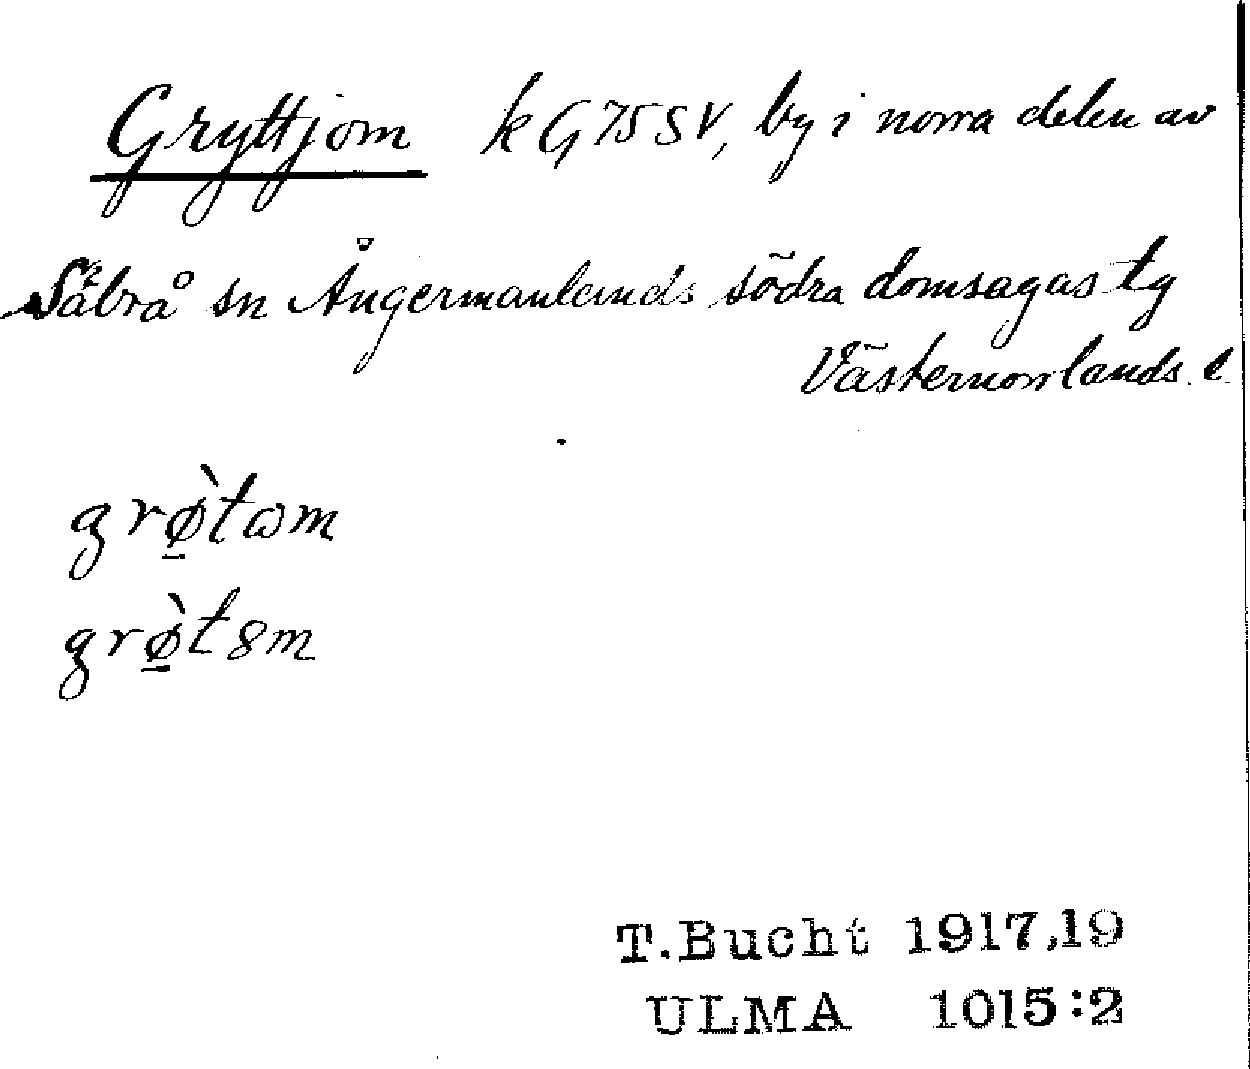 Gryttjom k G75SV, by i norra delen av
Säbrå sn Ångermanlands södra domsagas tg
Västernorrlands l.
grø̱̀tɷm
grø̱̀t8m
T.Bucht 1917,19
ULMA 1015:2